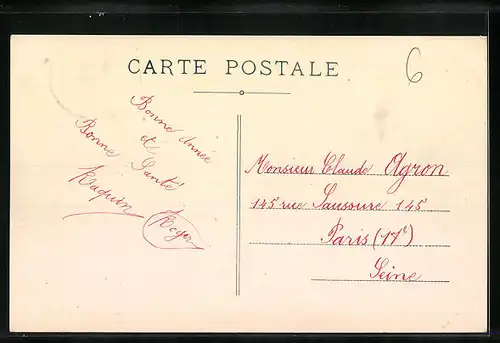 CARTE POSTALE
6
Bonne Année
et
Bonne Santé
Raquin
Roger
Monsieur Claude Agron
145 rue Saussure 145
Paris (17e)
Seine